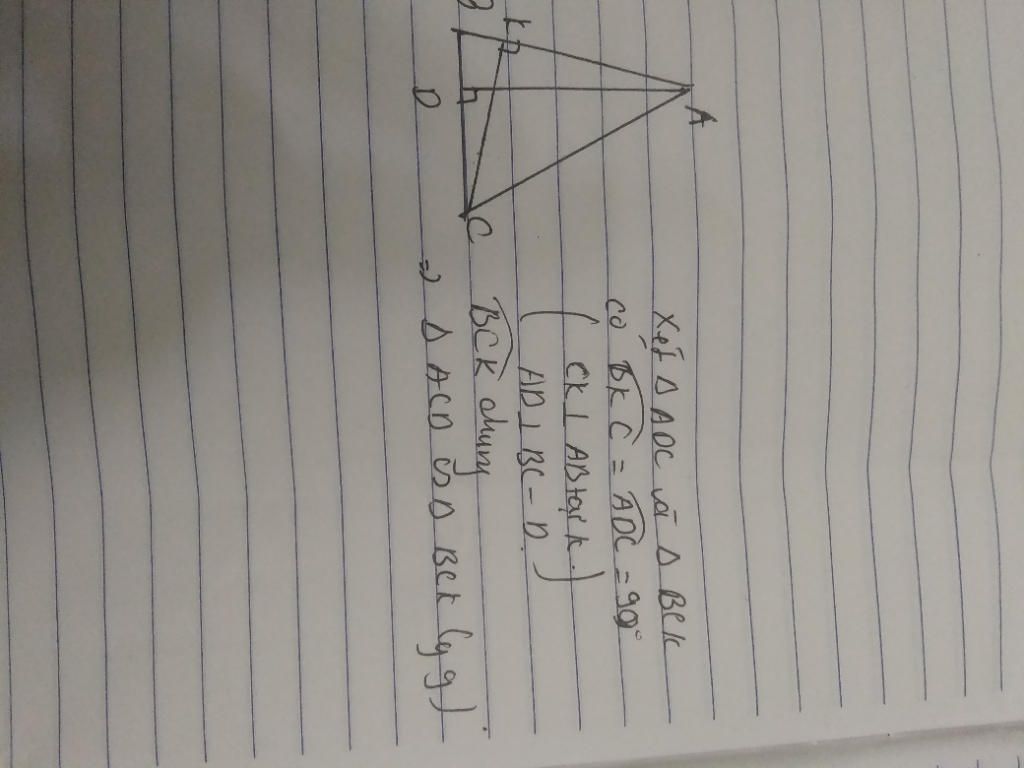 A
K
D
C
Xét Δ ADC và Δ BCK
có BKC = ADC = 90°
( CK ⊥ AB tại K.
AD ⊥ BC - D. )
BCK chung
=> Δ ACD ∽ Δ BCK (g g)